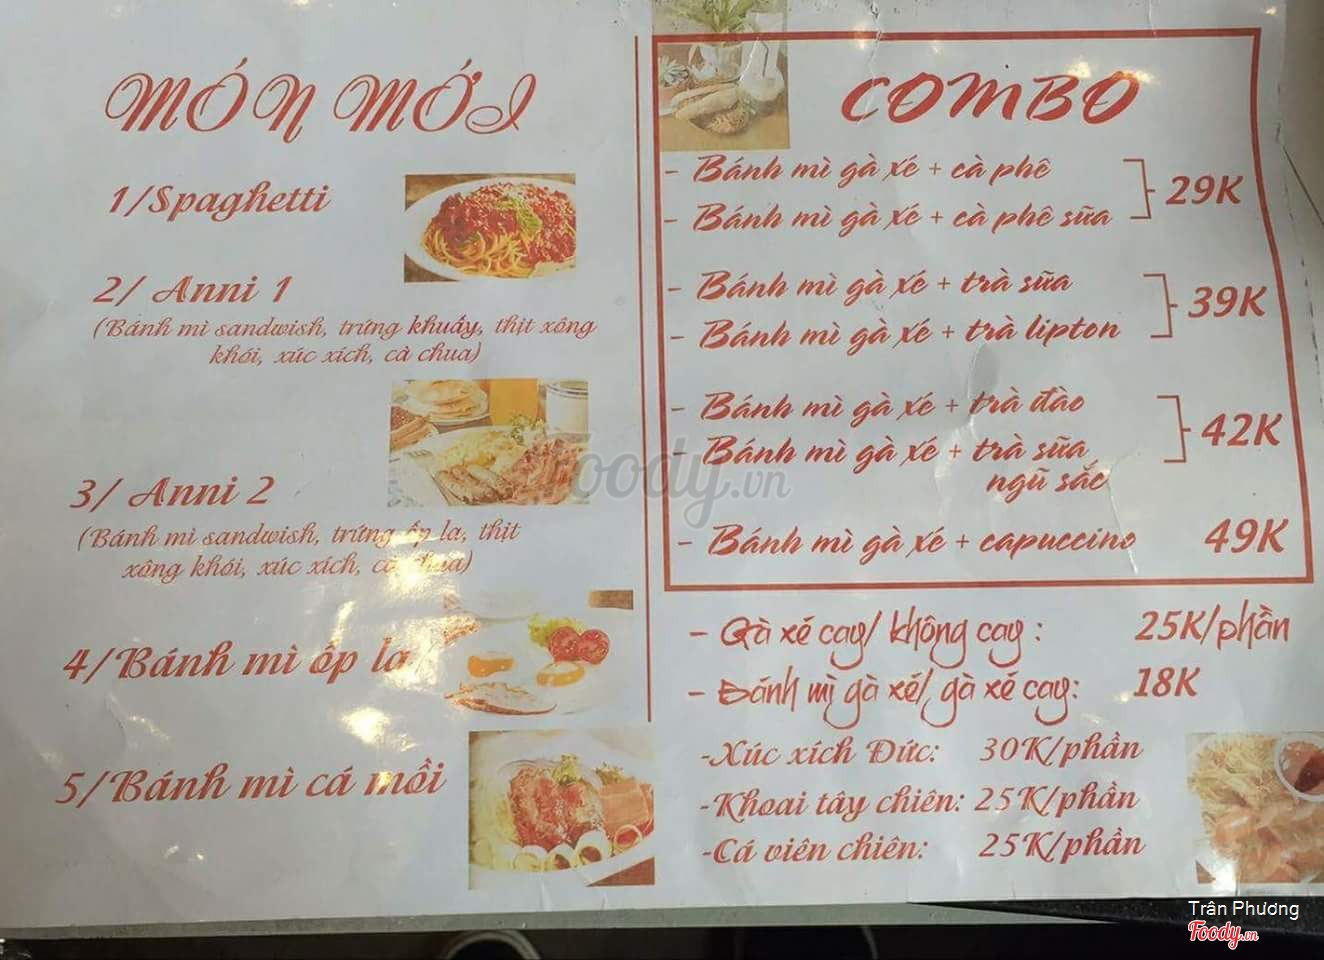 MÓN MỚI
1/Spaghetti
2/ Anni 1
(Bánh mì sandwish, trứng khuấy, thịt xông
khói, xúc xích, cà chua)
3/ Anni 2
(Bánh mì sandwish, trứng ốp la, thịt
xông khói, xúc xích, cà chua)
4/Bánh mì ốp la
5/Bánh mì cá mồi
COMBO
- Bánh mì gà xé + cà phê
- Bánh mì gà xé + cà phê sữa
29K
- Bánh mì gà xé + trà sữa
- Bánh mì gà xé + trà lipton
39K
- Bánh mì gà xé + trà đào
- Bánh mì gà xé + trà sữa
ngũ sắc
42K
- Bánh mì gà xé + capuccino 49K
- Gà xé cay/ không cay : 25K/phần
- Bánh mì gà xé/, gà xé cay: 18K
-Xúc xích Đức: 30K/phần
-Khoai tây chiên: 25K/phần
-Cá viên chiên: 25K/phần
Foody.vn
Trân Phương
Foody.vn